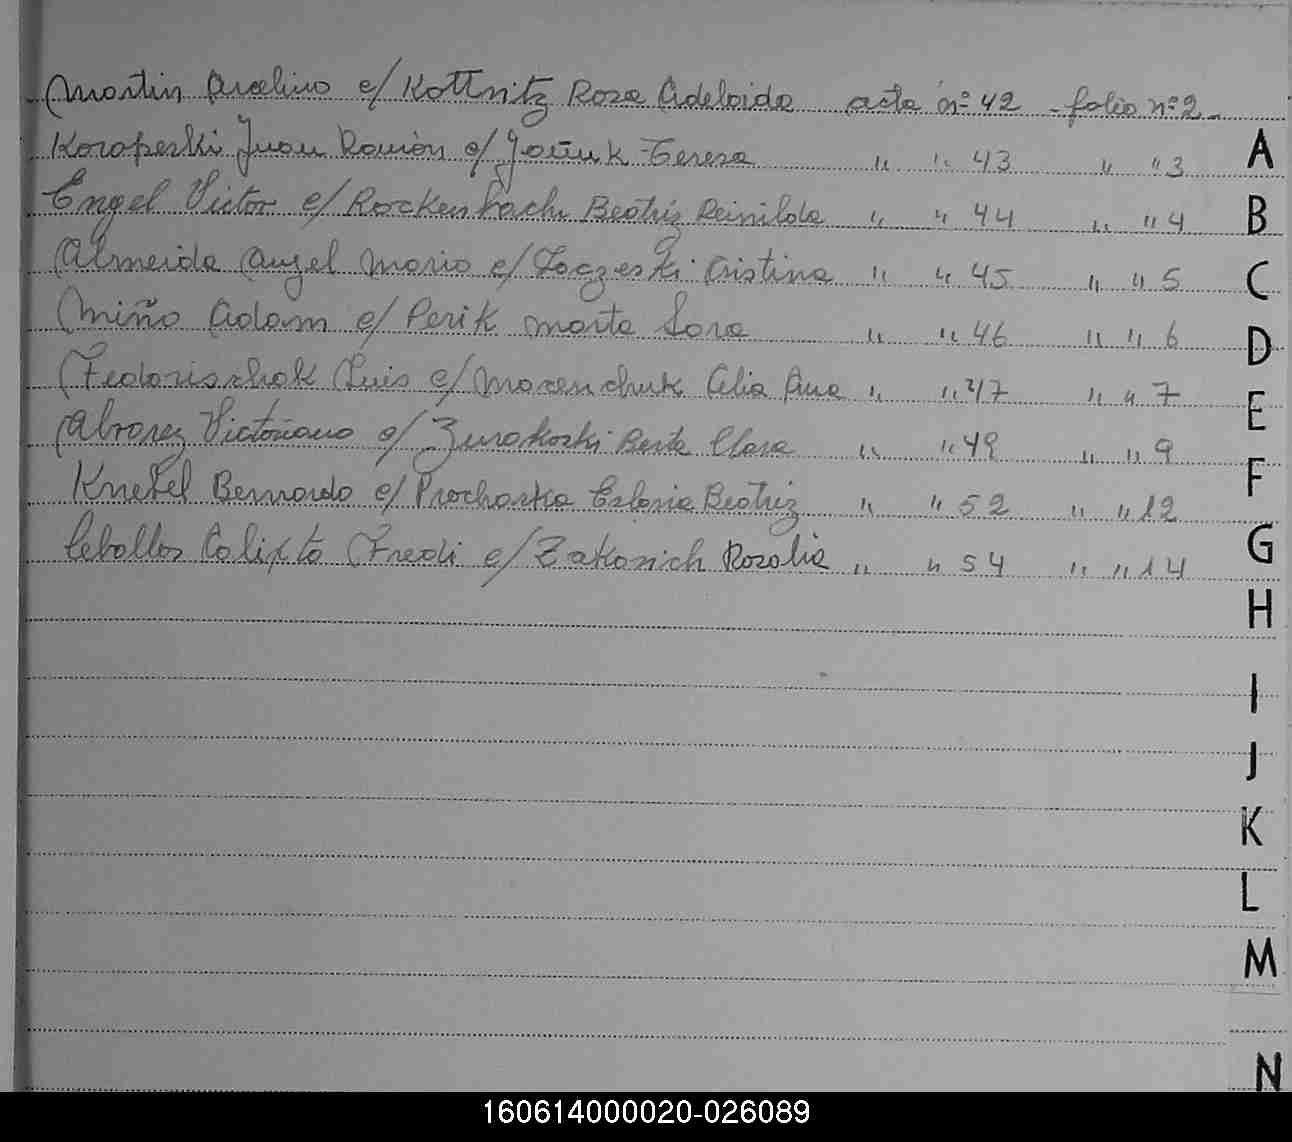 Martin Avelino c/ Kottnitz Rosa Adelaida acta nº 42 - folio nº 2.
Koropeski Juan Ramón c/ Teresa " " 43 " " 3
Engel Victor c/ Rockenbach Beatriz Reinilda " " 44 " " 4
Almeida Angel Mario c/ Loczeski Cristina " " 45 " " 5
Miño Adam c/ Perik Marta Sara " " 46 " " 6
Fedorischak Luis c/ Marenchuk Celia Ana " " 47 " " 7
Alvarez Victoriano c/ Zurakoski Berta Clara " " 49 " " 9
Knebel Bernardo c/ Prochaska Beatriz " " 52 " " 12
Ceballos Calixto Fredi c/ Zakosich Rosalia " " 54 " " 14
A
B
C
D
E
F
G
H
I
J
K
L
M
N
160614000020-026089